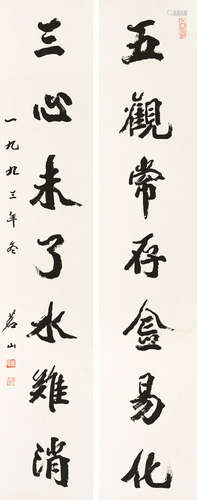 五觀常存金易化
三心未了水難消
一九九三年冬
茗山